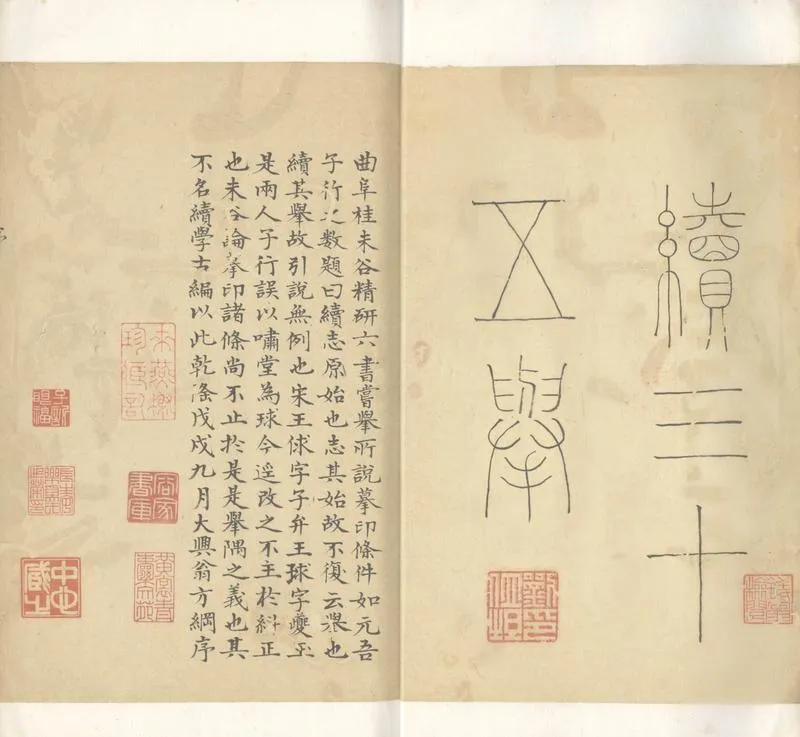 續三十
五舉
曲阜桂未谷精研六書嘗舉所說摹印條件如元吾
子行之数題曰續志原始也志其始故不復云舉也
續其舉故引說無例也宋王俅字子弁王球字夔玉
是兩人子行誤以嘯堂為球今逕改之不主於糾正
也未谷論摹印諸條尚不止於是是舉隅之義也其
不名續學古編以此乾隆戊戌九月大興翁方綱序